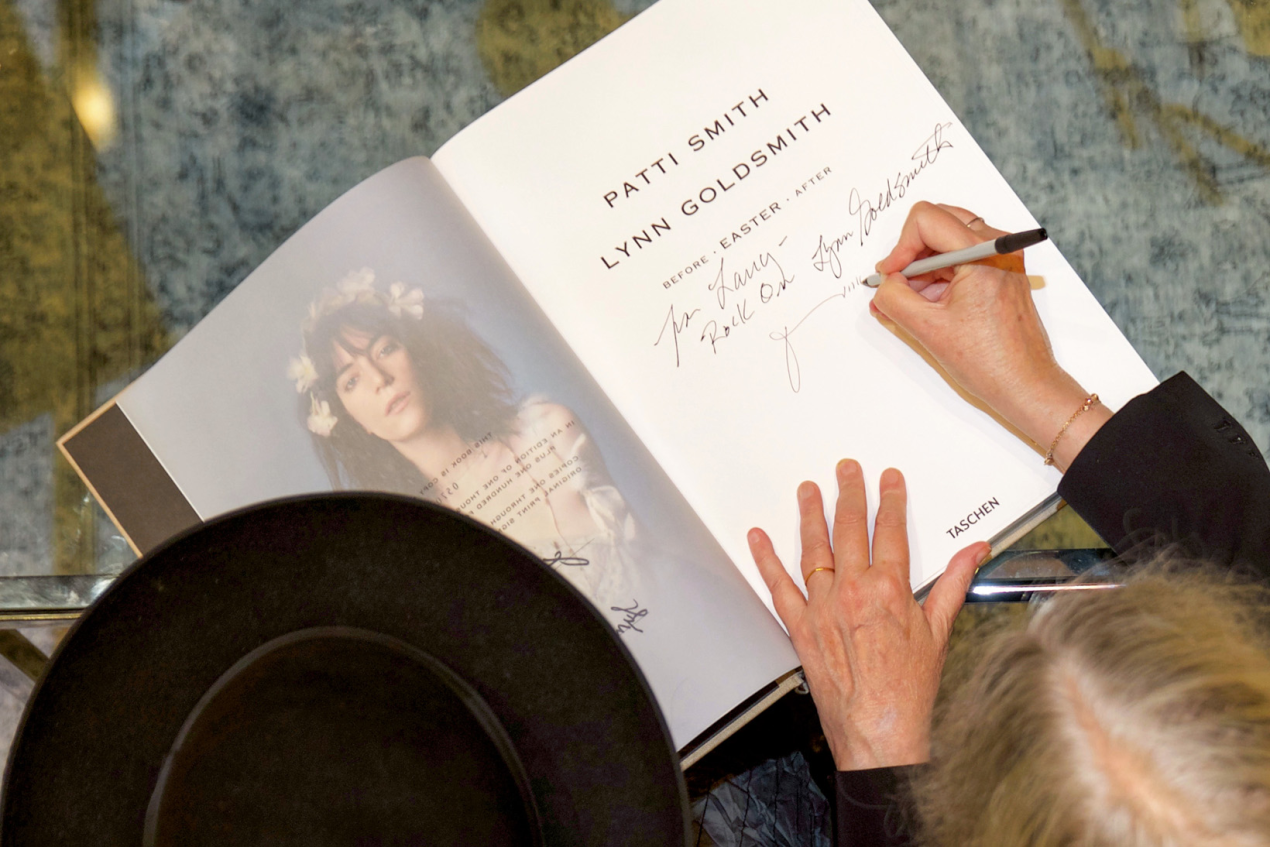 PATTI SMITH
LYNN GOLDSMITH
BEFORE · EASTER · AFTER
For Larry
Rock On
Lynn Goldsmith
TASCHEN
THIS BOOK IS
IN AN EDITION OF ONE THOU
PLUS ONE HUNDRED
COPIES ONE THROUGH
ORIGINAL PRINT SIG